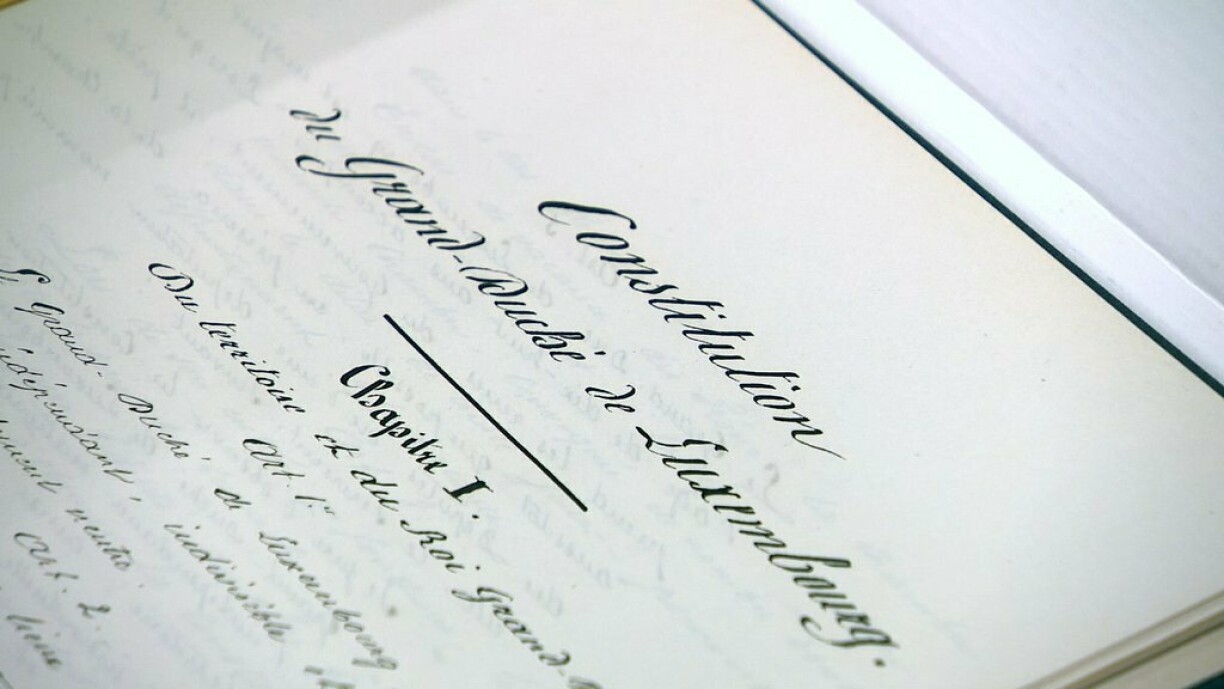 Constitution
du Grand-Duché de Luxembourg.
Chapitre I.
Du territoire et du Roi Grand-
Art. 1er
Le Grand-Duché de Luxembourg
indépendant, indivisible
neutre.
Art. 2.